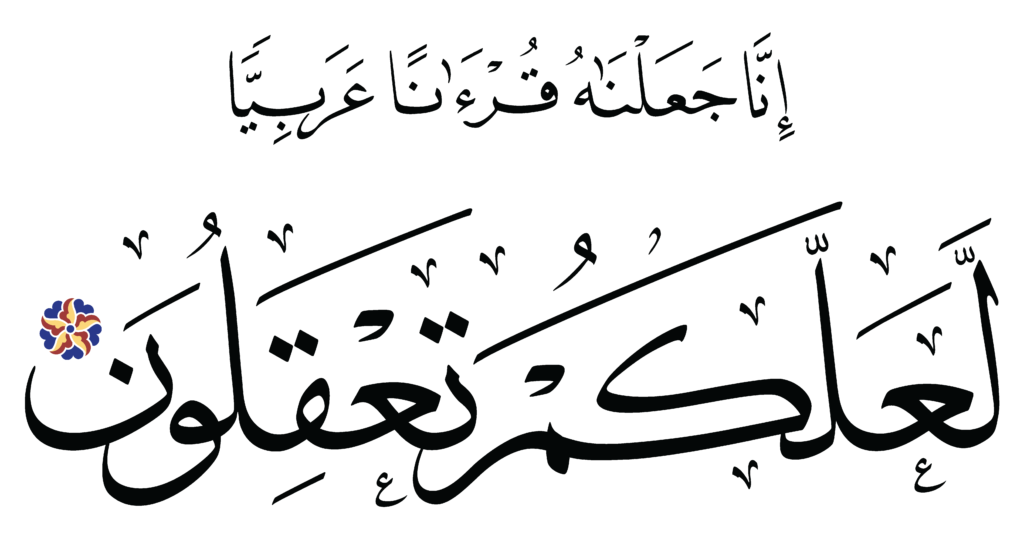 إِنَّا جَعَلْنَٰهُ قُرْءَٰنًا عَرَبِيًّا
لَّعَلَّكُمْ تَعْقِلُونَ